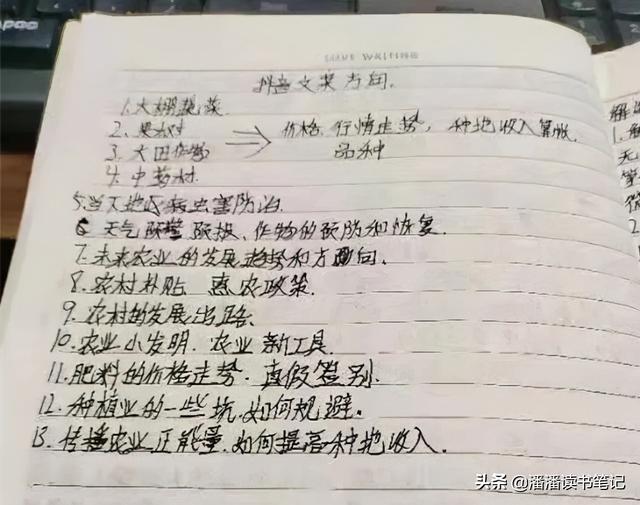 抖音文案方向.
1.大棚蔬菜
2.果树
3.大田作物
4.中药材
价格,行情走势,种地收入算账.
品种
5.当下地区病虫害防治.
6.天气 预报,作物的预防和恢复.
7.未来农业的发展趋势和方向.
8.农村补贴 惠农政策.
9.农村的发展出路.
10.农业小发明.农业新工具.
11.肥料的价格走势.真假鉴别.
12.种植业的一些坑.如何规避.
13.传播农业正能量.如何提高种地收入.
头条 @潘潘读书笔记